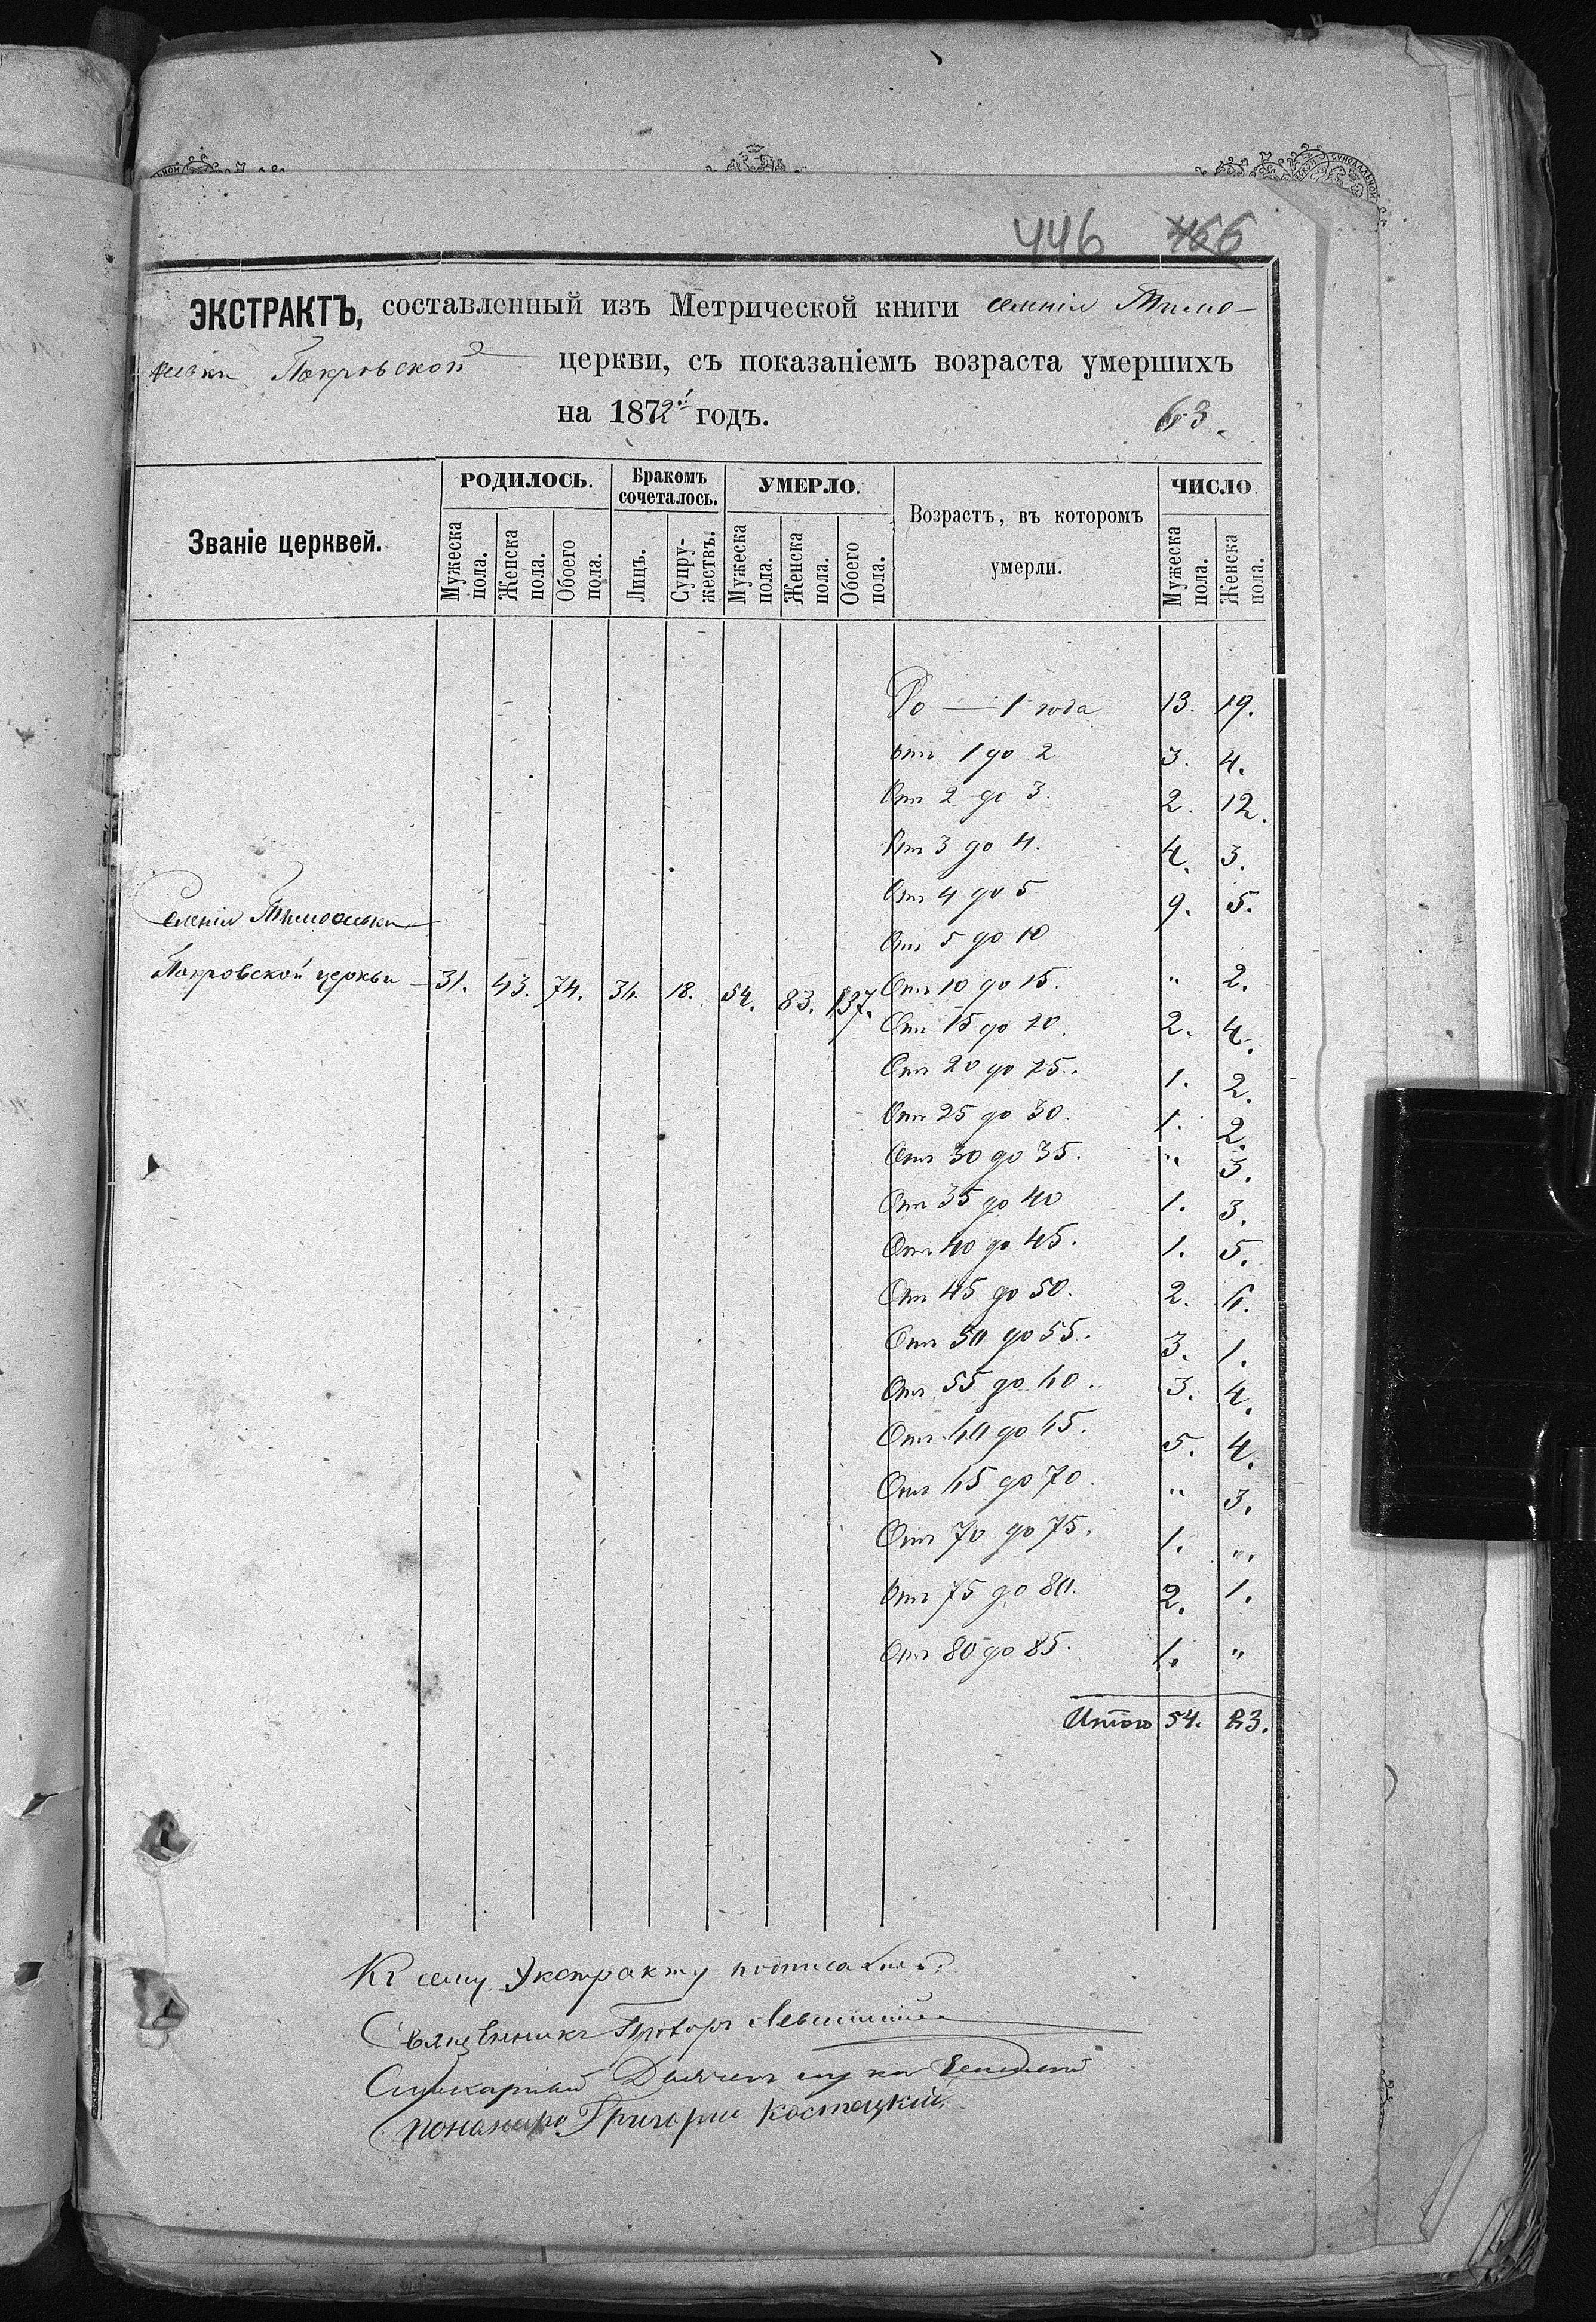 446 466
ЭКСТРАКТЪ, составленный изъ Метрической книги селенія Тимо-
шевки Покровской церкви, съ показаніемъ возраста умершихъ
на 1872 годъ.
63.
Званіе церквей.
РОДИЛОСЬ.
Бракомъ сочеталось.
УМЕРЛО.
Возрастъ, въ которомъ умерли.
ЧИСЛО
Мужеска пола. Женска пола. Обоего пола. Лицъ. Супружествъ. Мужеска пола. Женска пола. Обоего пола. Мужеска пола. Женска пола.
До — 1 года 13. 19.
отъ 1 до 2 3. 4.
Отъ 2 до 3. 2. 12.
Отъ 3 до 4. 4. 3.
Отъ 4 до 5 9. 5.
Отъ 5 до 10
Селенія
Покровской церкви 31. 43. 74. 36. 18. 54. 83. 137.
Отъ 10 до 15. " 2.
Отъ 15 до 20. 2. 4.
Отъ 20 до 25. 1. 2.
Отъ 25 до 30. 1. 2.
Отъ 30 до 35. " 3.
Отъ 35 до 40 1. 3.
Отъ 40 до 45. 1. 5.
Отъ 45 до 50. 2. 6.
Отъ 50 до 55. 3. 1.
Отъ 55 до 60. 3. 4.
Отъ 60 до 65. 5. 4.
Отъ 65 до 70. " 3.
Отъ 70 до 75. 1. ".
Отъ 75 до 80. 2. 1.
Отъ 80 до 85. 1. "
Итого 54. 83.
Къ сему Экстракту подписались:
Священникъ
Григорий Костецкій